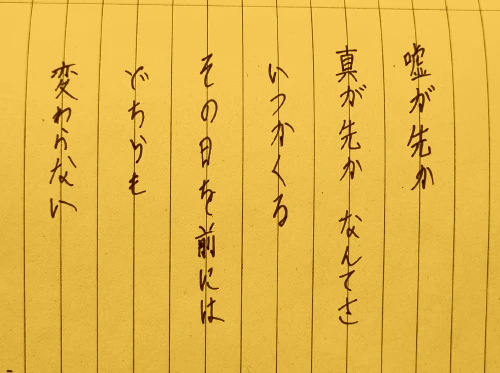 嘘が先か
真が先か なんてさ
いつかくる
その日を前には
どちらも
変わらない